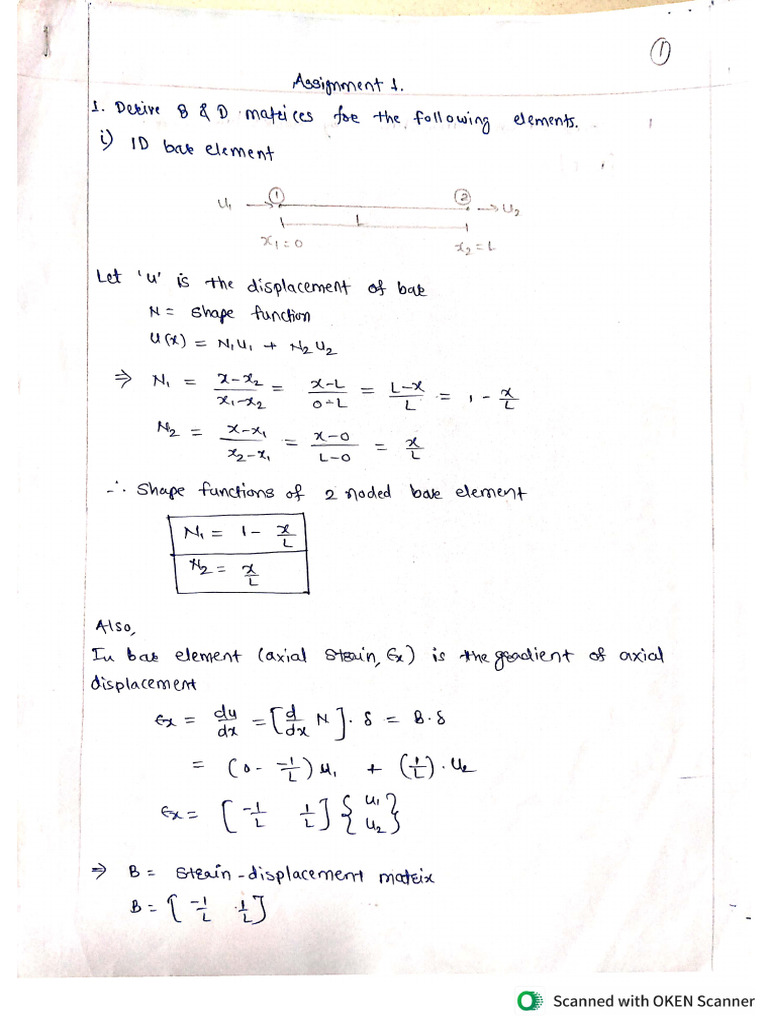 ①
Assignment 1.
1. Derive B & D matrices for the following elements.
i) 1D bar element
① ②
U₁ → → U₂
L
x₁=0 x₂=L
Let 'u' is the displacement of bar
N = shape function
U(x) = N₁U₁ + N₂U₂
⇒ N₁ = (x-x₂)/(x₁-x₂) = (x-L)/(0-L) = (L-x)/L = 1 - x/L
N₂ = (x-x₁)/(x₂-x₁) = (x-0)/(L-0) = x/L
∴ Shape functions of 2 noded bar element
N₁ = 1 - x/L
N₂ = x/L
Also,
In bar element (axial strain, εx) is the gradient of axial
displacement
εx = du/dx = [d/dx N]. δ = B.δ
= (0 - -1/L) u₁ + (1/L).u₂
εx = [-1/L 1/L] {u₁ u₂}
⇒ B = strain-displacement matrix
B = [-1/L 1/L]
Scanned with OKEN Scanner